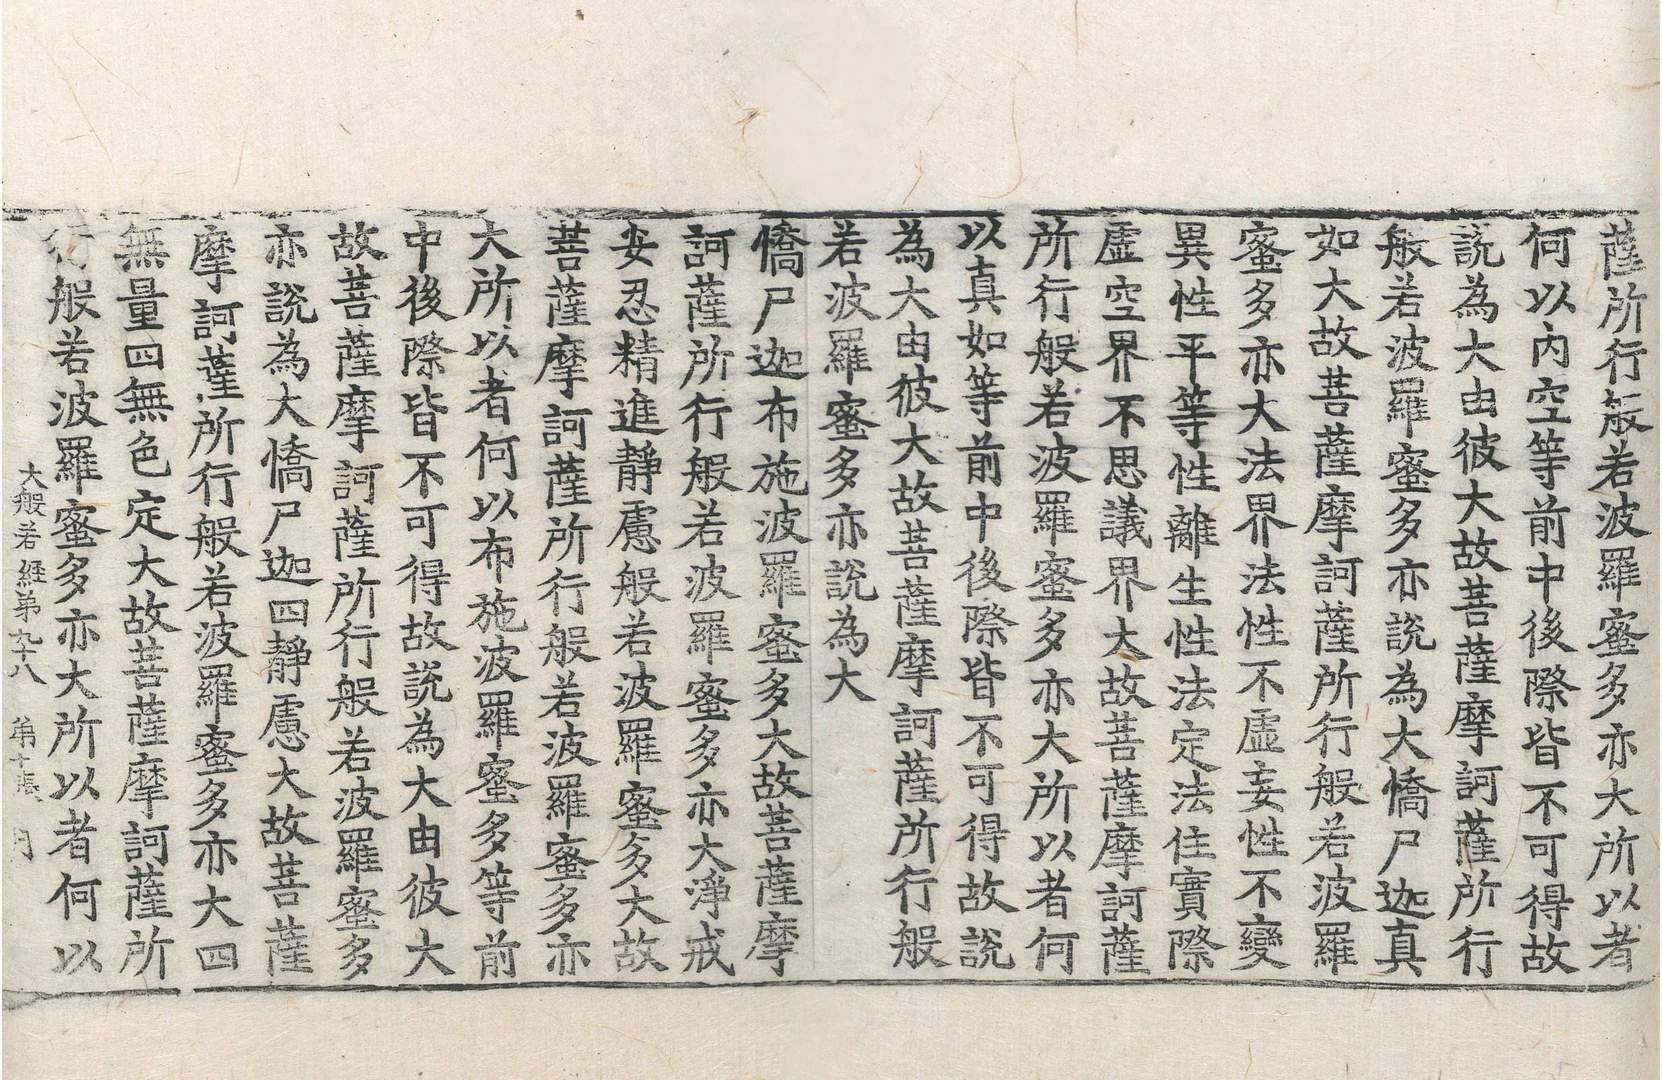 薩所行般若波羅蜜多亦大所以者
何以內空等前中後際皆不可得故
說為大由彼大故菩薩摩訶薩所行
般若波羅蜜多亦說為大憍尸迦真
如大故菩薩摩訶薩所行般若波羅
蜜多亦大法界法性不虛妄性不變
異性平等性離生性法定法住實際
虛空界不思議界大故菩薩摩訶薩
所行般若波羅蜜多亦大所以者何
以真如等前中後際皆不可得故說
為大由彼大故菩薩摩訶薩所行般
若波羅蜜多亦說為大
憍尸迦布施波羅蜜多大故菩薩摩
訶薩所行般若波羅蜜多亦大淨戒
安忍精進靜慮般若波羅蜜多大故
菩薩摩訶薩所行般若波羅蜜多亦
大所以者何以布施波羅蜜多等前
中後際皆不可得故說為大由彼大
故菩薩摩訶薩所行般若波羅蜜多
亦說為大憍尸迦四靜慮大故菩薩
摩訶薩所行般若波羅蜜多亦大四
無量四無色定大故菩薩摩訶薩所
行般若波羅蜜多亦大所以者何以
大般若經第九十八 第十張 月